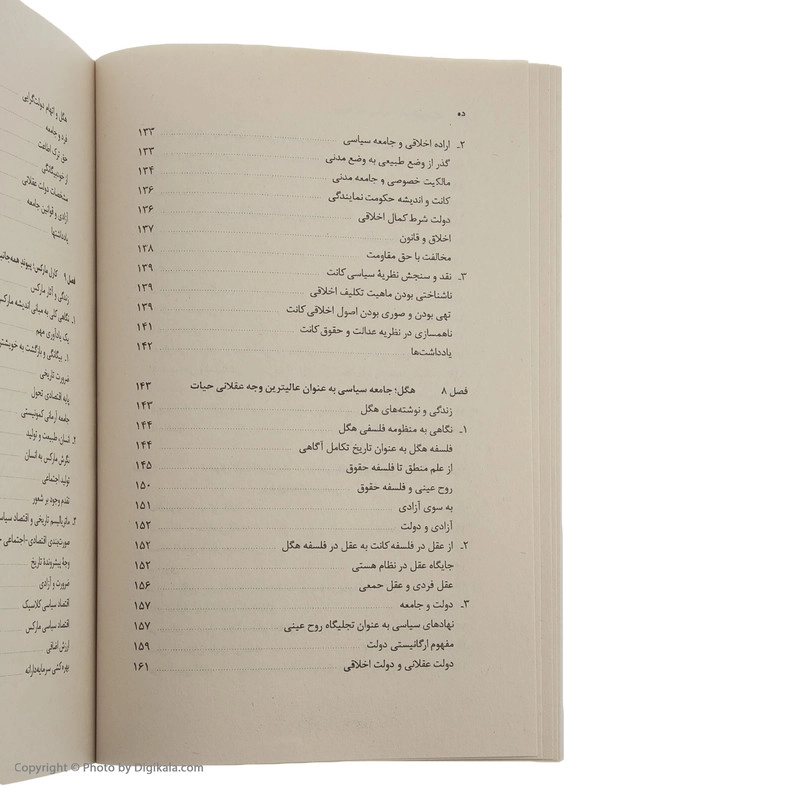 ده
۲ـ اراده اخلاقی و جامعه سیاسی ۱۳۳
گذر از وضع طبیعی به وضع مدنی ۱۳۳
مالکیت خصوصی و جامعه مدنی ۱۳۴
کانت و اندیشه حکومت نمایندگی ۱۳۶
دولت شرط کمال اخلاقی ۱۳۶
اخلاق و قانون ۱۳۷
مخالفت با حق مقاومت ۱۳۸
۳ـ نقد و سنجش نظریهٔ سیاسی کانت ۱۳۹
ناشناختی بودن ماهیت تکلیف اخلاقی ۱۳۹
تهی بودن و صوری بودن اصول اخلاقی کانت ۱۳۹
ناهمسازی در نظریه عدالت و حقوق کانت ۱۴۱
یادداشت‌ها ۱۴۲
فصل ۸ هگل؛ جامعه سیاسی به عنوان عالیترین وجه عقلانی حیات ۱۴۳
زندگی و نوشته‌های هگل ۱۴۳
۱ـ نگاهی به منظومه فلسفی هگل ۱۴۴
فلسفه هگل به عنوان تاریخ تکامل آگاهی ۱۴۴
از علم منطق تا فلسفه حقوق ۱۴۵
روح عینی و فلسفه حقوق ۱۵۰
به سوی آزادی ۱۵۱
آزادی و دولت ۱۵۲
۲ـ از عقل در فلسفه کانت به عقل در فلسفه هگل ۱۵۲
جایگاه عقل در نظام هستی ۱۵۲
عقل فردی و عقل جمعی ۱۵۶
۳ـ دولت و جامعه ۱۵۷
نهادهای سیاسی به عنوان تجلیگاه روح عینی ۱۵۷
مفهوم ارگانیستی دولت ۱۵۹
دولت عقلانی و دولت اخلاقی ۱۶۱
هگل و اتهام دولت‌گرایی
فرد و جامعه
حق ترک اطاعت
از خودبیگانگی
مشخصات دولت عقلانی
آزادی و قوانین جامعه
یادداشتها
فصل ۹ کارل مارکس؛ پیوند همه‌جانبه
زندگی و آثار مارکس
۱ـ نگاهی کلی به مبانی اندیشه مارکس
یک یادآوری مهم
۱ـ بیگانگی و بازگشت به خویشتن
ضرورت تاریخی
پایه اقتصادی تحول
جامعه آرمانی کمونیستی
۲ـ انسان، طبیعت و تولید
نگرش مارکس به انسان
تولید اجتماعی
تقدم وجود بر شعور
۳ـ ماتریالیسم تاریخی و اقتصاد
صورت‌بندی اقتصادی-اجتماعی
وجهٔ پیشروندهٔ تاریخ
ضرورت و آزادی
اقتصاد سیاسی کلاسیک
اقتصاد سیاسی مارکس
ارزش اضافی
بهره‌کشی سرمایه‌دارانه
Copyright © Photo by Digikala.com